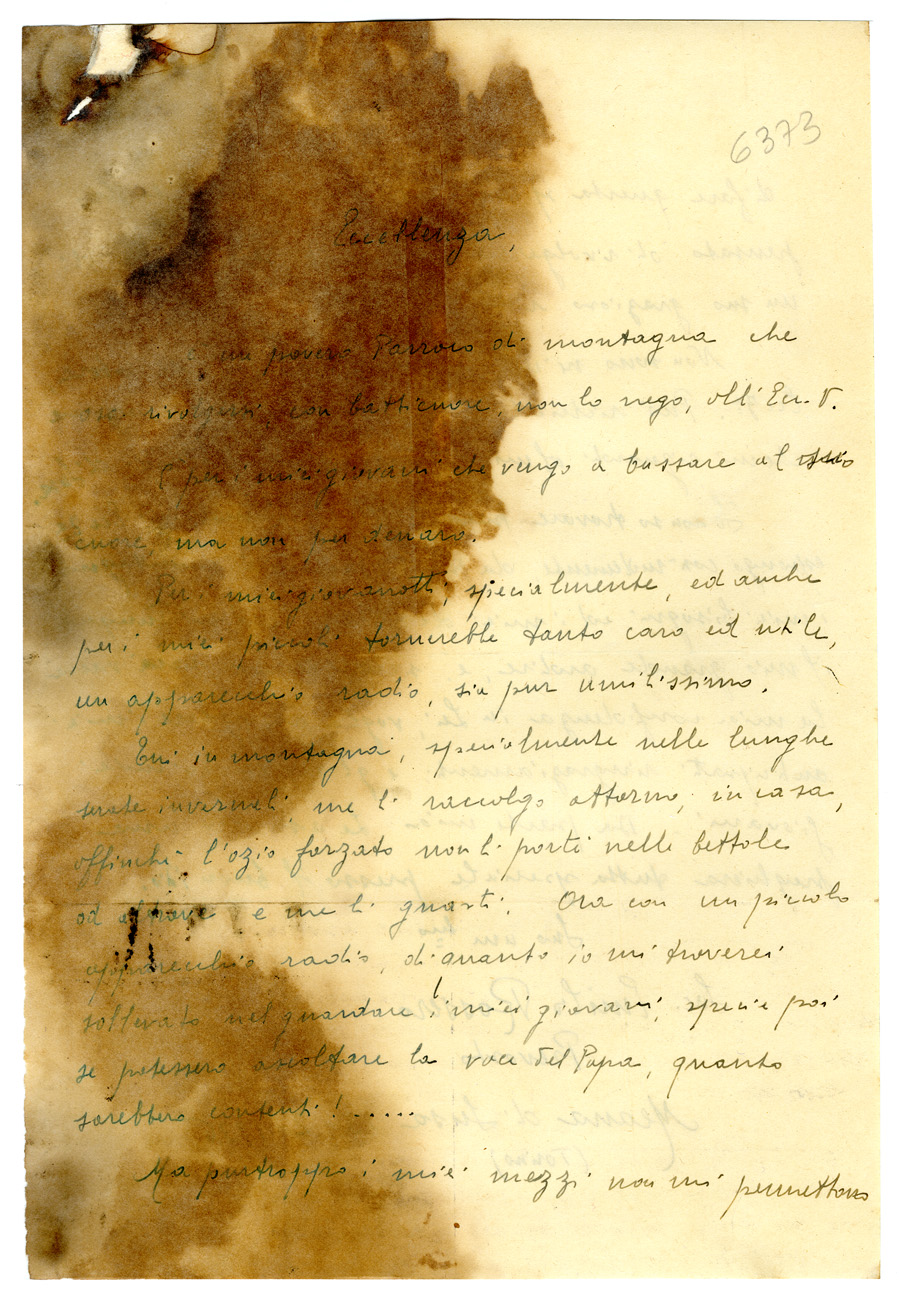 6373
Eccellenza,
un povero Parroco di montagna che
osa rivolgersi, con batticuore, non lo nego, all'Ecc. V.
È per i miei giovani che vengo a bussare al suo
cuore, ma non per denaro.
Per i miei giovanotti, specialmente, ed anche
per i miei piccoli tornerebbe tanto caro ed utile,
un apparecchio radio, sia pur umilissimo.
Qui in montagna, specialmente nelle lunghe
serate invernali, me li raccolgo attorno, in casa,
affinchè l'ozio forzato non li porti nelle bettole
od altrove e me li guasti. Ora con un piccolo
apparecchio radio, di quanto io mi troverei
sollevato nel guardare i miei giovani, specie poi
se potessero ascoltare la voce del Papa, quanto
sarebbero contenti!.....
Ma purtroppo i miei mezzi non mi permettono